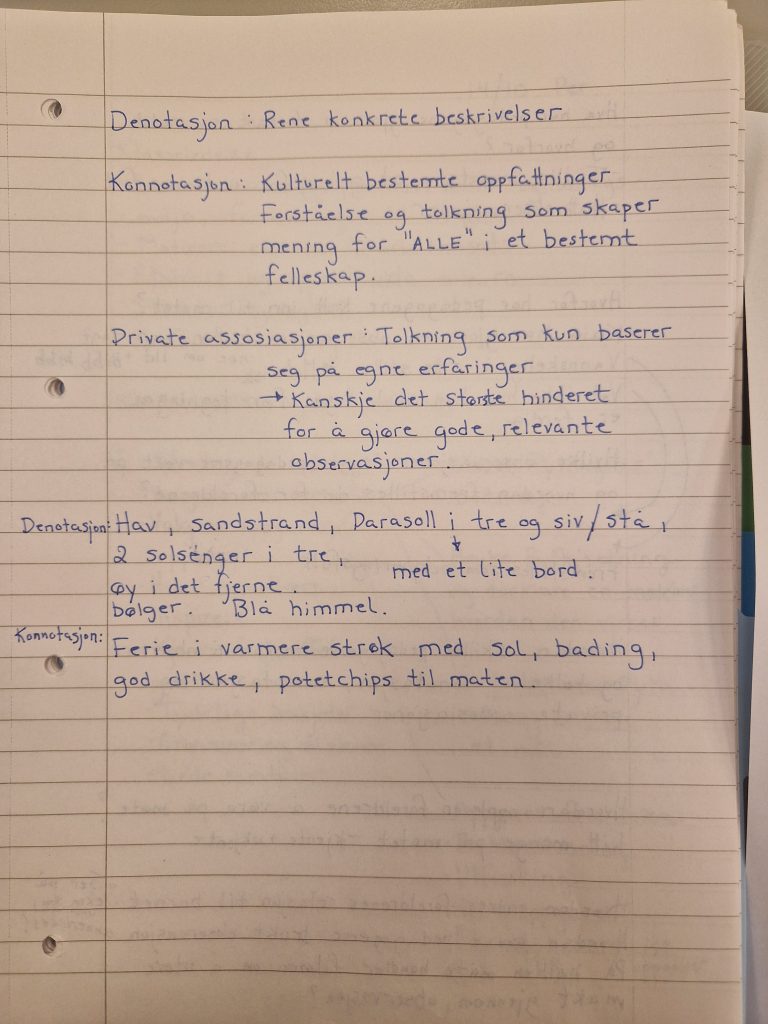 Denotasjon : Rene konkrete beskrivelser
Konnotasjon : Kulturelt bestemte oppfattninger
Forståelse og tolkning som skaper
mening for "ALLE" i et bestemt
felleskap.
Private assosiasjoner : Tolkning som kun baserer
seg på egne erfaringer
→ Kanskje det største hinderet
for å gjøre gode, relevante
observasjoner.
Denotasjon: Hav, sandstrand, Parasoll i tre og siv/stå,
2 solsenger i tre, med et lite bord.
øy i det fjerne.
bølger. Blå himmel.
Konnotasjon: Ferie i varmere strøk med sol, bading,
god drikke, potetchips til maten.